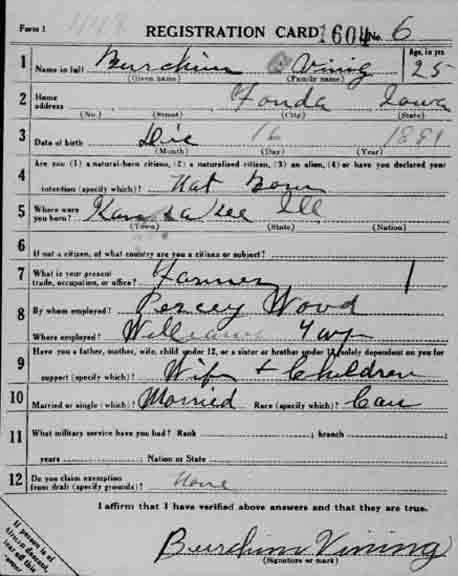 Form 1 448 REGISTRATION CARD 1604 No. 6
1 Name in full Burchim Vining Age, in yrs 25
(Given name) (Family name)
2 Home address Fonda Iowa
(No.) (Street) (City) (State)
3 Date of birth Dec 16 1891
(Month) (Day) (Year)
4 Are you (1) a natural-born citizen, (2) a naturalized citizen, (3) an alien, (4) or have you declared your
intention (specify which)? Nat Born
5 Where were you born? Ill
(Town) (State) (Nation)
6 If not a citizen, of what country are you a citizen or subject?
7 What is your present trade, occupation, or office? Farmer
8 By whom employed? Percey Wood
Where employed? Williams Twp
9 Have you a father, mother, wife, child under 12, or a sister or brother under 12, solely dependent on you for
support (specify which)? Wife + Children
10 Married or single (which)? Married Race (specify which)? Cau
11 What military service have you had? Rank ; branch ;
years ; Nation or State
12 Do you claim exemption from draft (specify grounds)? None
I affirm that I have verified above answers and that they are true.
Burchim Vining
(Signature or mark)
If person is of
African descent,
tear off this
corner